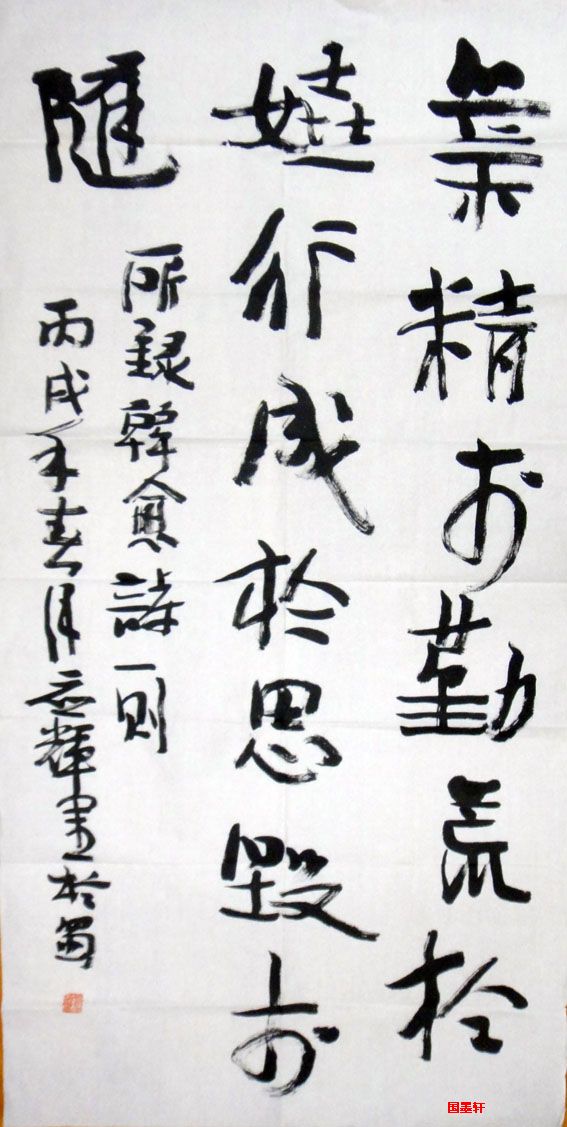 業精於勤荒於
嬉行成於思毀於
隨
所録韓愈詩一則
丙戌年春月輝書於蜀
国墨轩